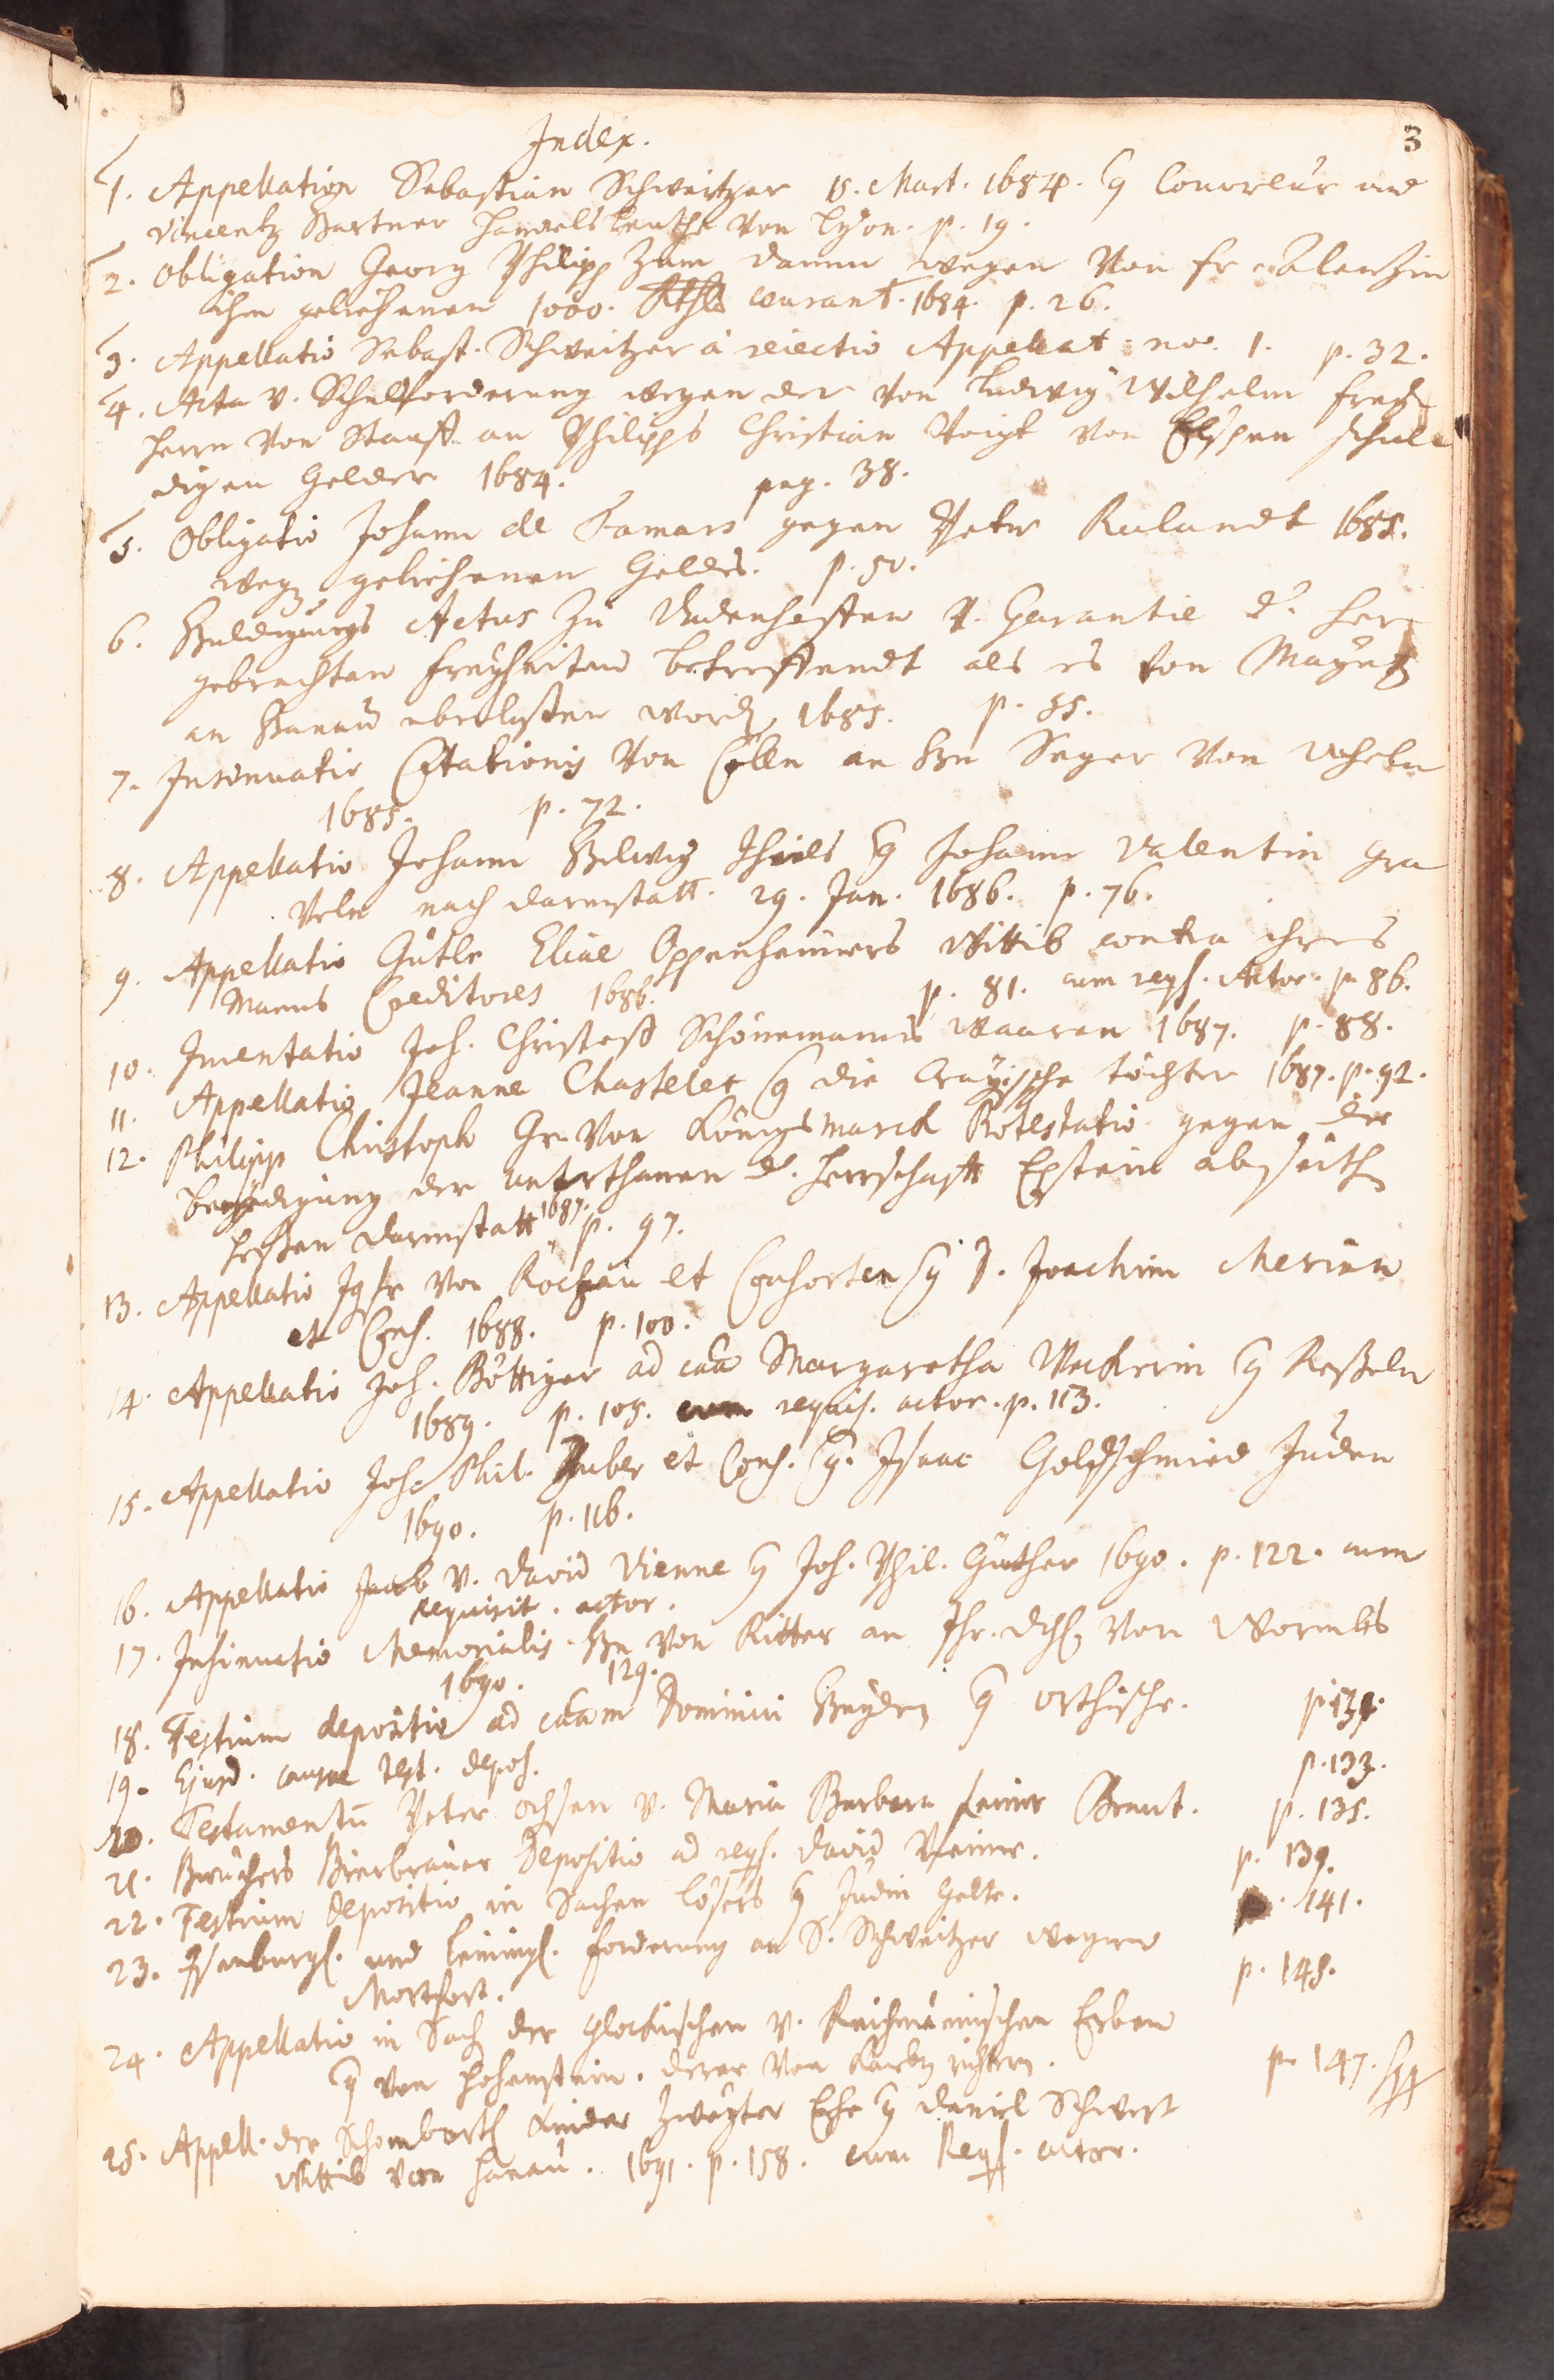 Index.
3
1. Appellation Sebastian Schweitzer 15. Mart. 1684. Couvreur und
Vincentz Bartner Handelsleuthe Von Lyon. p. 19.
2. Obligation Georg Philipp Zum Damm wegen Von
ihm geliehenen 1000. Rthlr courant. 1684. p. 26.
3. Appellatio Sebast. Schweitzer à reiectio Appellat. no. 1. p. 32.
4. Acta v. Schuldforderung wegen der Von Ludwig Wilhelm Frey
Herrn Von Stauff an Philipps Christian Voigt von Elspen schul
digen Gelder 1684. pag. 38.
5. Obligatio Johann de Famars gegen Peter Rulandt 1685.
weg. geliehenen Geldes. p. 50.
6. Huldigungs Actus Zu Dudenhoffen v. Garantie d. her
gebrachten Freyheiten betreffendt als es von Mayntz
an Hanau uberlassen word. 1685. p. 55.
7. Insinuatio Citationis Von Cölln an Hn Seger Von
1685. p. 72.
8. Appellatio Johann Helwig Thiels Johann Valentin Gra
nach Darmstatt. 29. Jan. 1686. p. 76.
9. Appellatio Gütle Eliae Oppenheimers Wittib contra ihres
Manns Creditores 1686. p. 81. cum reqs. Actor. p. 86.
10. Inventatio Joh. Christoff Schönemanns Waaren 1687. p. 88.
11. Appellatio Jeanne Chastelet die Crayische töchter 1687. p. 92.
12. Philipp Christoph Gr. Von Königsmarck Protestatio gegen die
beeydigung der unterthanen d. Herrschafft Epstein abseith
Heßen Darmstatt 1687. p. 97.
13. Appellatio Von Rochau et Consorten J. Joachim Merian
et Cons. 1688. p. 100.
14. Appellatio Joh. Böttiger ad caa Margaretha Weckerin Keßeler
1689. p. 108. cum requis. actor. p. 113.
15. Appellatio Joh. Phil. Huber et Cons. Isaac Goldschmied Juden
1690. p. 116.
16. Appellatio Jacob v. David Vienne Joh. Phil. Günther 1690. p. 122. cum
requisit. actor.
17. Insinuatio Memorialis Hn Von Ritter an Ihr. Von Wormbs
1690. 129.
18. Testium depositio ad caam Dominici Heyden Orthische. p. 131.
19. Ejusd. causae test. depos. p. 133.
20. Testamentū Peter Ochsen v. Maria Barbara seiner Braut. p. 135.
21. Bierbrauer Depositio ad reqs. David p. 139.
22. Testium Depositio in Sachen Lösers Judin Gelte. p. 141.
23. Isenburgs. und Leinings. Forderung an S. Schweitzer wegen
Montfort. p. 145.
24. Appellatio in Sach der Glockischen v. Reichmännischen Erben
von Hohenstein. p. 147.
25. Appell. der Kinder Zweyter Ehe Daniel
Wittib von Hanau. 1691. p. 158. cum Reqs. actor.